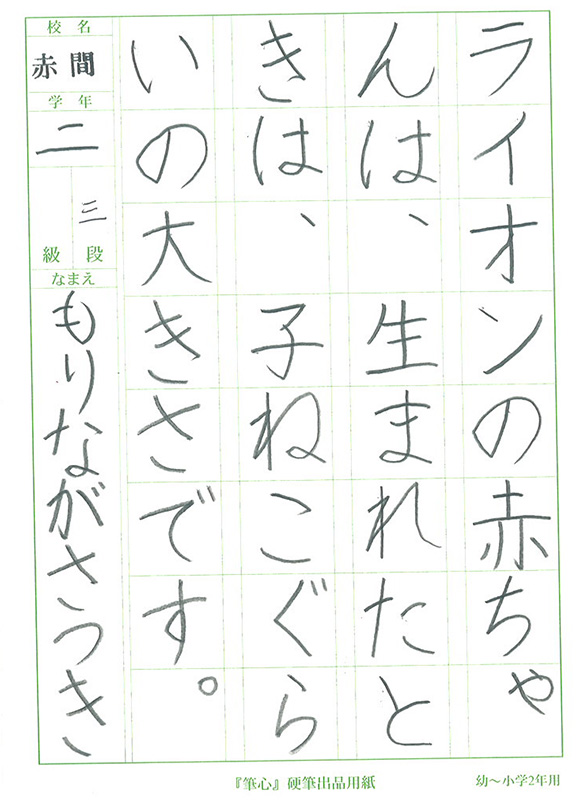 ライオンの赤ちゃ
んは、生まれたと
きは、子ねこぐら
いの大きさです。
校名
赤間
学年
二
三
級段
なまえ
もりながさつき
『筆心』硬筆出品用紙
幼～小学2年用